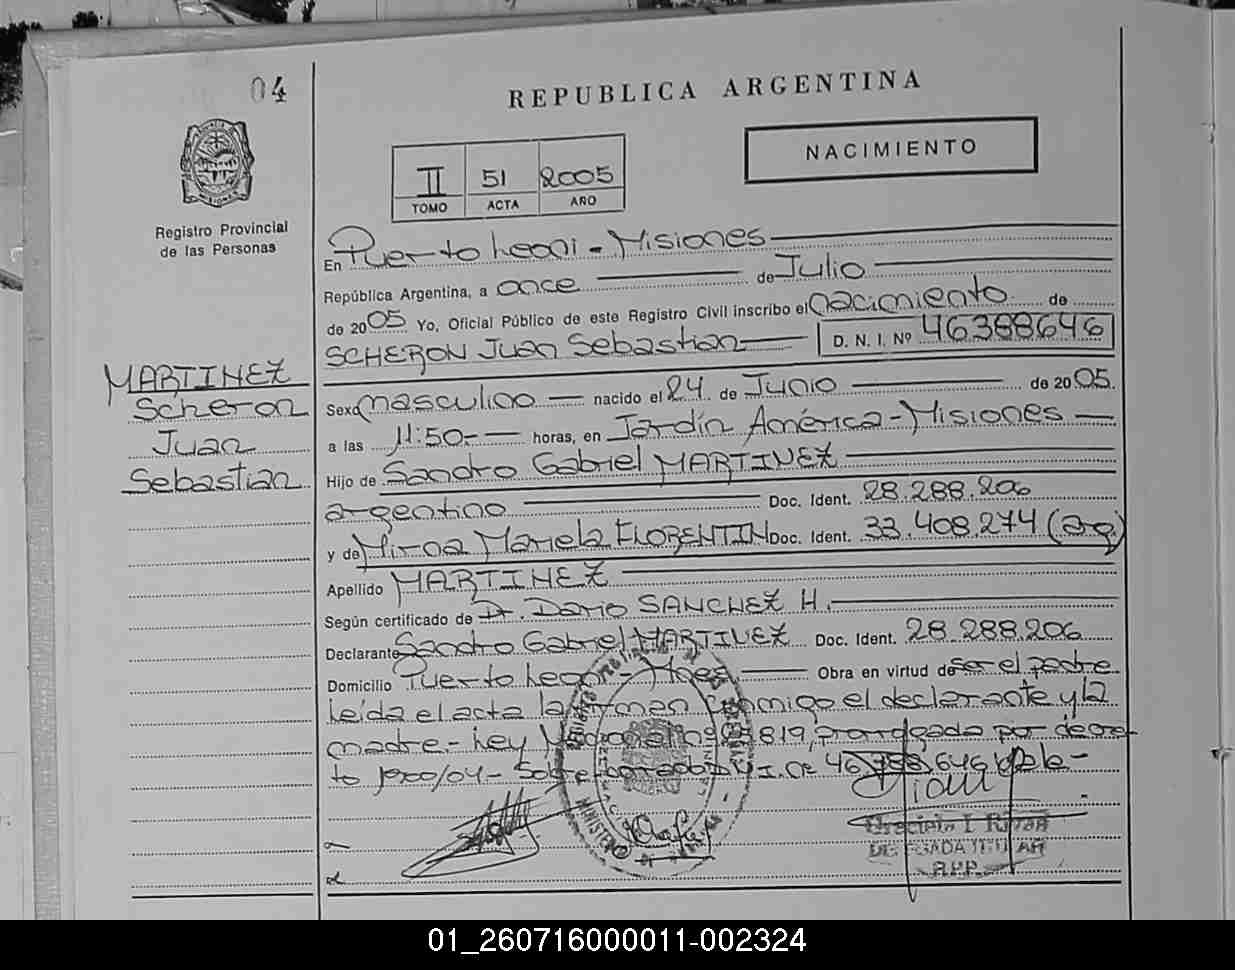 04
REPUBLICA ARGENTINA
NACIMIENTO
II 51 2005
TOMO ACTA AÑO
Registro Provincial
de las Personas
En Puerto Leoni - Misiones
República Argentina, a once de Julio
de 2005 Yo, Oficial Público de este Registro Civil inscribo el nacimiento de
SCHERON Juan Sebastian D. N. I. Nº 46388646
MARTINEZ
Scheron
Juan
Sebastian
Sexo masculino nacido el 24 de Junio de 2005.
a las 11:50.- horas, en Jardín América - Misiones
Hijo de Sandro Gabriel MARTINEZ
argentino Doc. Ident. 28.288.206
y de Mirna Mariela FLORENTIN Doc. Ident. 33.408.274 (arg)
Apellido MARTINEZ
Según certificado de Dr. Dario SANCHEZ H.
Declarante Sandro Gabriel MARTINEZ Doc. Ident. 28.288.206
Domicilio Puerto Leoni - Mnes Obra en virtud de ser el padre
Leída el acta la firman conmigo el declarante y la
madre.- Ley Nacional nº 819, prorrogada por decre-
to 1900/04 - Sobre D.N.I. nº 46.388.646 Vale-
Graciela I.
DELEGADA TITULAR
R.P.P.
01_260716000011-002324